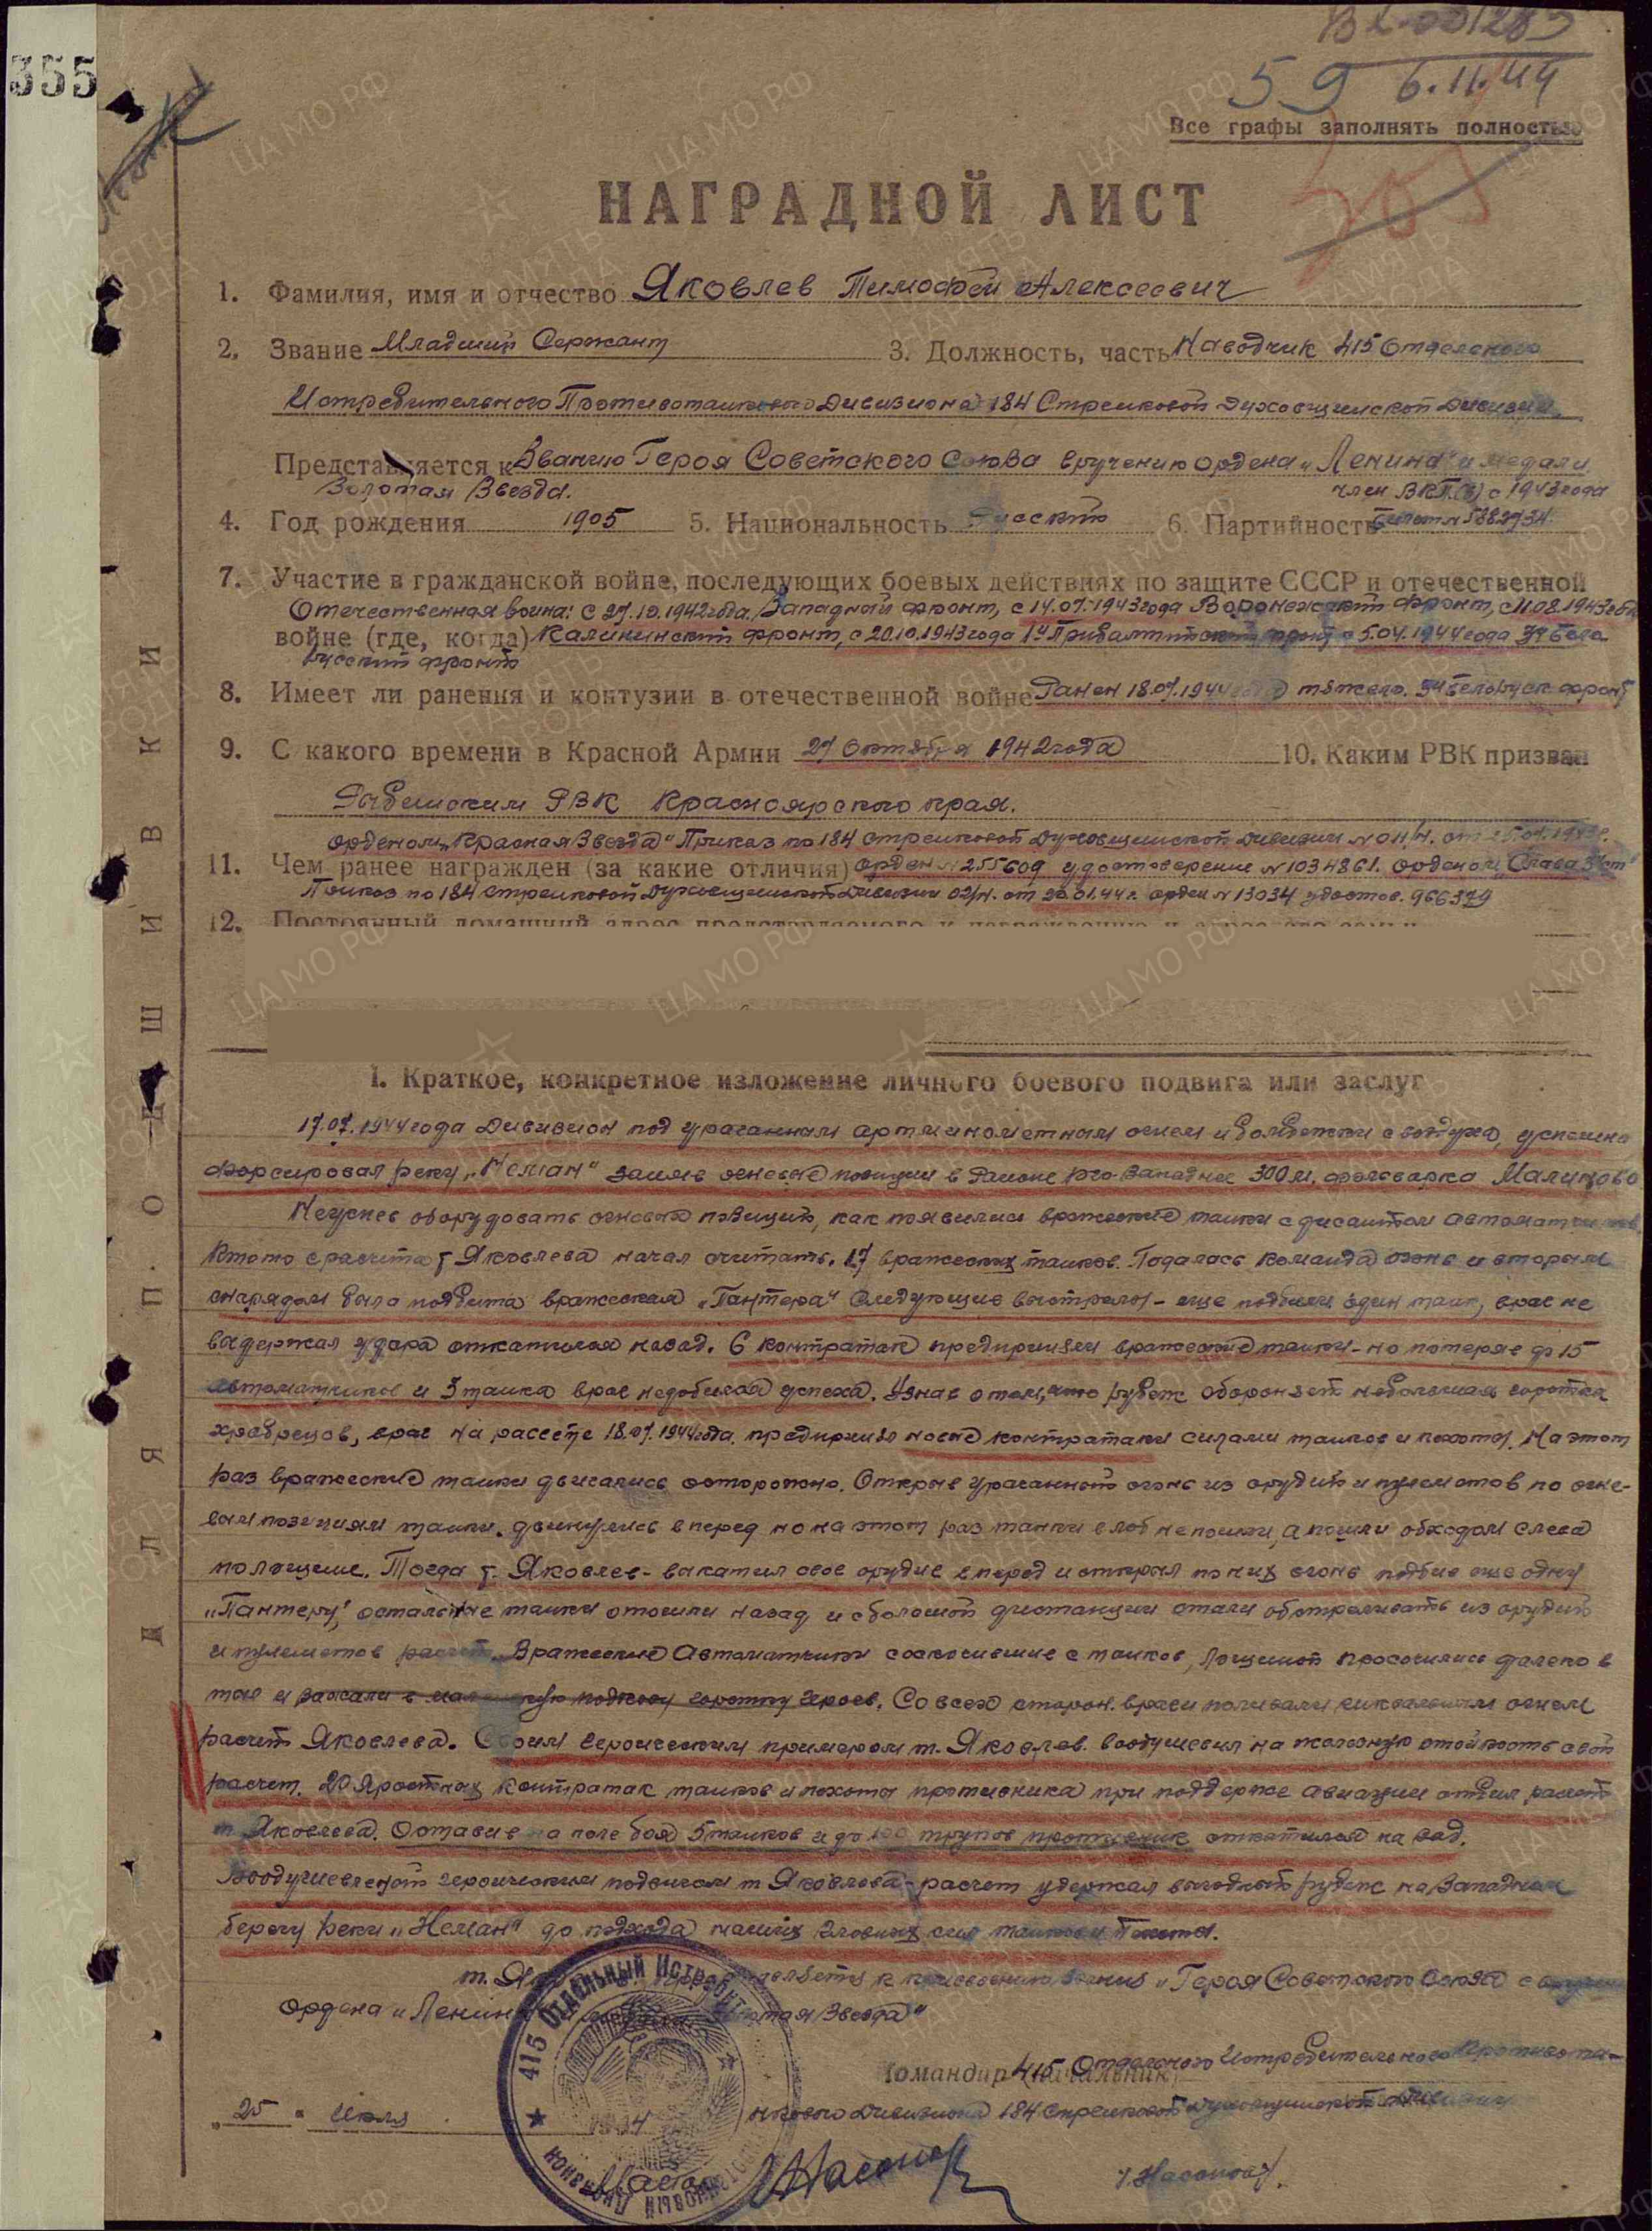 355
59 6.11.44
Все графы заполнять полностью
НАГРАДНОЙ ЛИСТ
1. Фамилия, имя и отчество Яковлев Тимофей Алексеевич
2. Звание Младший Сержант 3. Должность, часть Наводчик 415 Отдельного
Истребительного Противотанкового Дивизиона 184 Стрелковой Духовщинской Дивизии
Представляется к Званию Героя Советского Союза вручению ордена „Ленина" и медали
Золотая Звезда.
член ВКП(б) с 1943 года
4. Год рождения 1905 5. Национальность Русский 6. Партийность билет №
7. Участие в гражданской войне, последующих боевых действиях по защите СССР и отечественной
Отечественная война: с 27.10.1942 года. Западный фронт, с 14.07.1943 года Воронежский фронт, с 11.08.1943 года
войне (где, когда) Калининский фронт, с 20.10.1943 года 1й Прибалтийский фронт с 5.04.1944 года 3й Бело
русский фронт
8. Имеет ли ранения и контузии в отечественной войне Ранен 18.07.1944 года тяжело. фронт
9. С какого времени в Красной Армии 27 Октября 1942 года 10. Каким РВК призван
Рыбинским РВК Красноярского края.
орденом „Красная Звезда" Приказ по 184 стрелковой Духовщинской дивизии
11. Чем ранее награжден (за какие отличия) орден № 255609 удостоверение № 1034861. Орденом Слава 3 ст
Приказ по 184 Стрелковой Духовщинской Дивизии 02/н. от 20.01.44 г. орден № 13034 удостов. 966379
12. Постоянный домашний адрес представляемого к награждению и адрес его семьи
1. Краткое, конкретное изложение личного боевого подвига или заслуг
17.07.1944 года Дивизион под ураганным артминометным огнем и бомбежки с воздуха, успешно
форсировал реку „Неман" заняв огневые позиции в Районе юго-западнее 300 м. фольварка
Неуспев оборудовать огневые позиции, как появились вражеские танки с десантом автоматчиков
Кто то с расчета т Яковлева начал считать. 17 вражеских танков. Подалась команда огонь и вторым
снарядом была подбита вражеская „Пантера" Следующие выстрелы - еще подбили один танк, враг не
выдержал удара откатился назад. 6 контратак предприняли вражеские танки - но потеряв до 15
автоматчиков и 3 танка враг недобился успеха. Узнав о том, что рубеж обороняет небольшая горстка
храбрецов, враг на рассвете 18.07.1944 года. предпринял новые контратаки силами танков и пехоты. На этот
раз вражеские танки двигались осторожно. Открыв ураганный огонь из орудий и пулеметов по огне-
вым позициям танки двинулись вперед но на этот раз танки в лоб не пошли, а пошли обходом слева
по лощине. Тогда т. Яковлев - выкатил свое орудие вперед и открыл по них огонь подбив еще одну
„Пантеру", остальные танки отошли назад и с большой дистанции стали обстреливать из орудий
и пулеметов расчет. Вражеские Автоматчики соскочившие с танков, лощиной просочились далеко в
тыл и зажали в подкову горстку героев. Со всех сторон враги поливали шквальным огнем
расчет Яковлева. Своим героическим примером т. Яковлев воодушевил на железную стойкость свой
расчет. 20 яростных контратак танков и пехоты противника при поддержке авиации отбил расчет
т. Яковлева. Оставив на поле боя 5 танков и до 100 трупов противник откатился назад.
Воодушевленный героическим подвигом т Яковлева - расчет удержал выгодный рубеж на Западном
берегу реки „Неман" до подхода наших главных сил танков и Пехоты.
к присвоению звания „Героя Советского Союза с вручением
Ордена „Ленина" Золотая Звезда"
Командир (начальник) 415 Отдельного Истребительного Противота-
нкового Дивизиона 184 Стрелковой Духовщинской Дивизии
„25" Июля 1944
415 Отдельный Истребит
Дивизион
ДЛЯ ПОДШИВКИ
ЦА МО РФ
ПАМЯТЬ НАРОДА